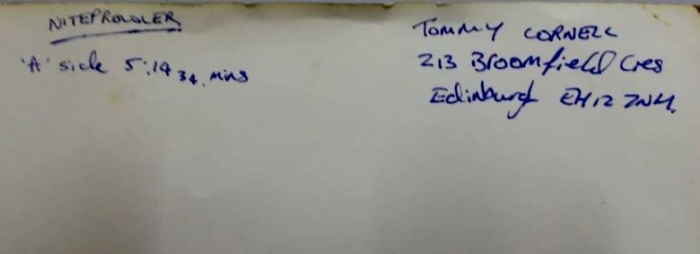 NITEPROWLER
'A' side 5:14 34. mins
TOMMY CORNELL
213 Broomfield Cres
Edinburgh EH12 7NH.